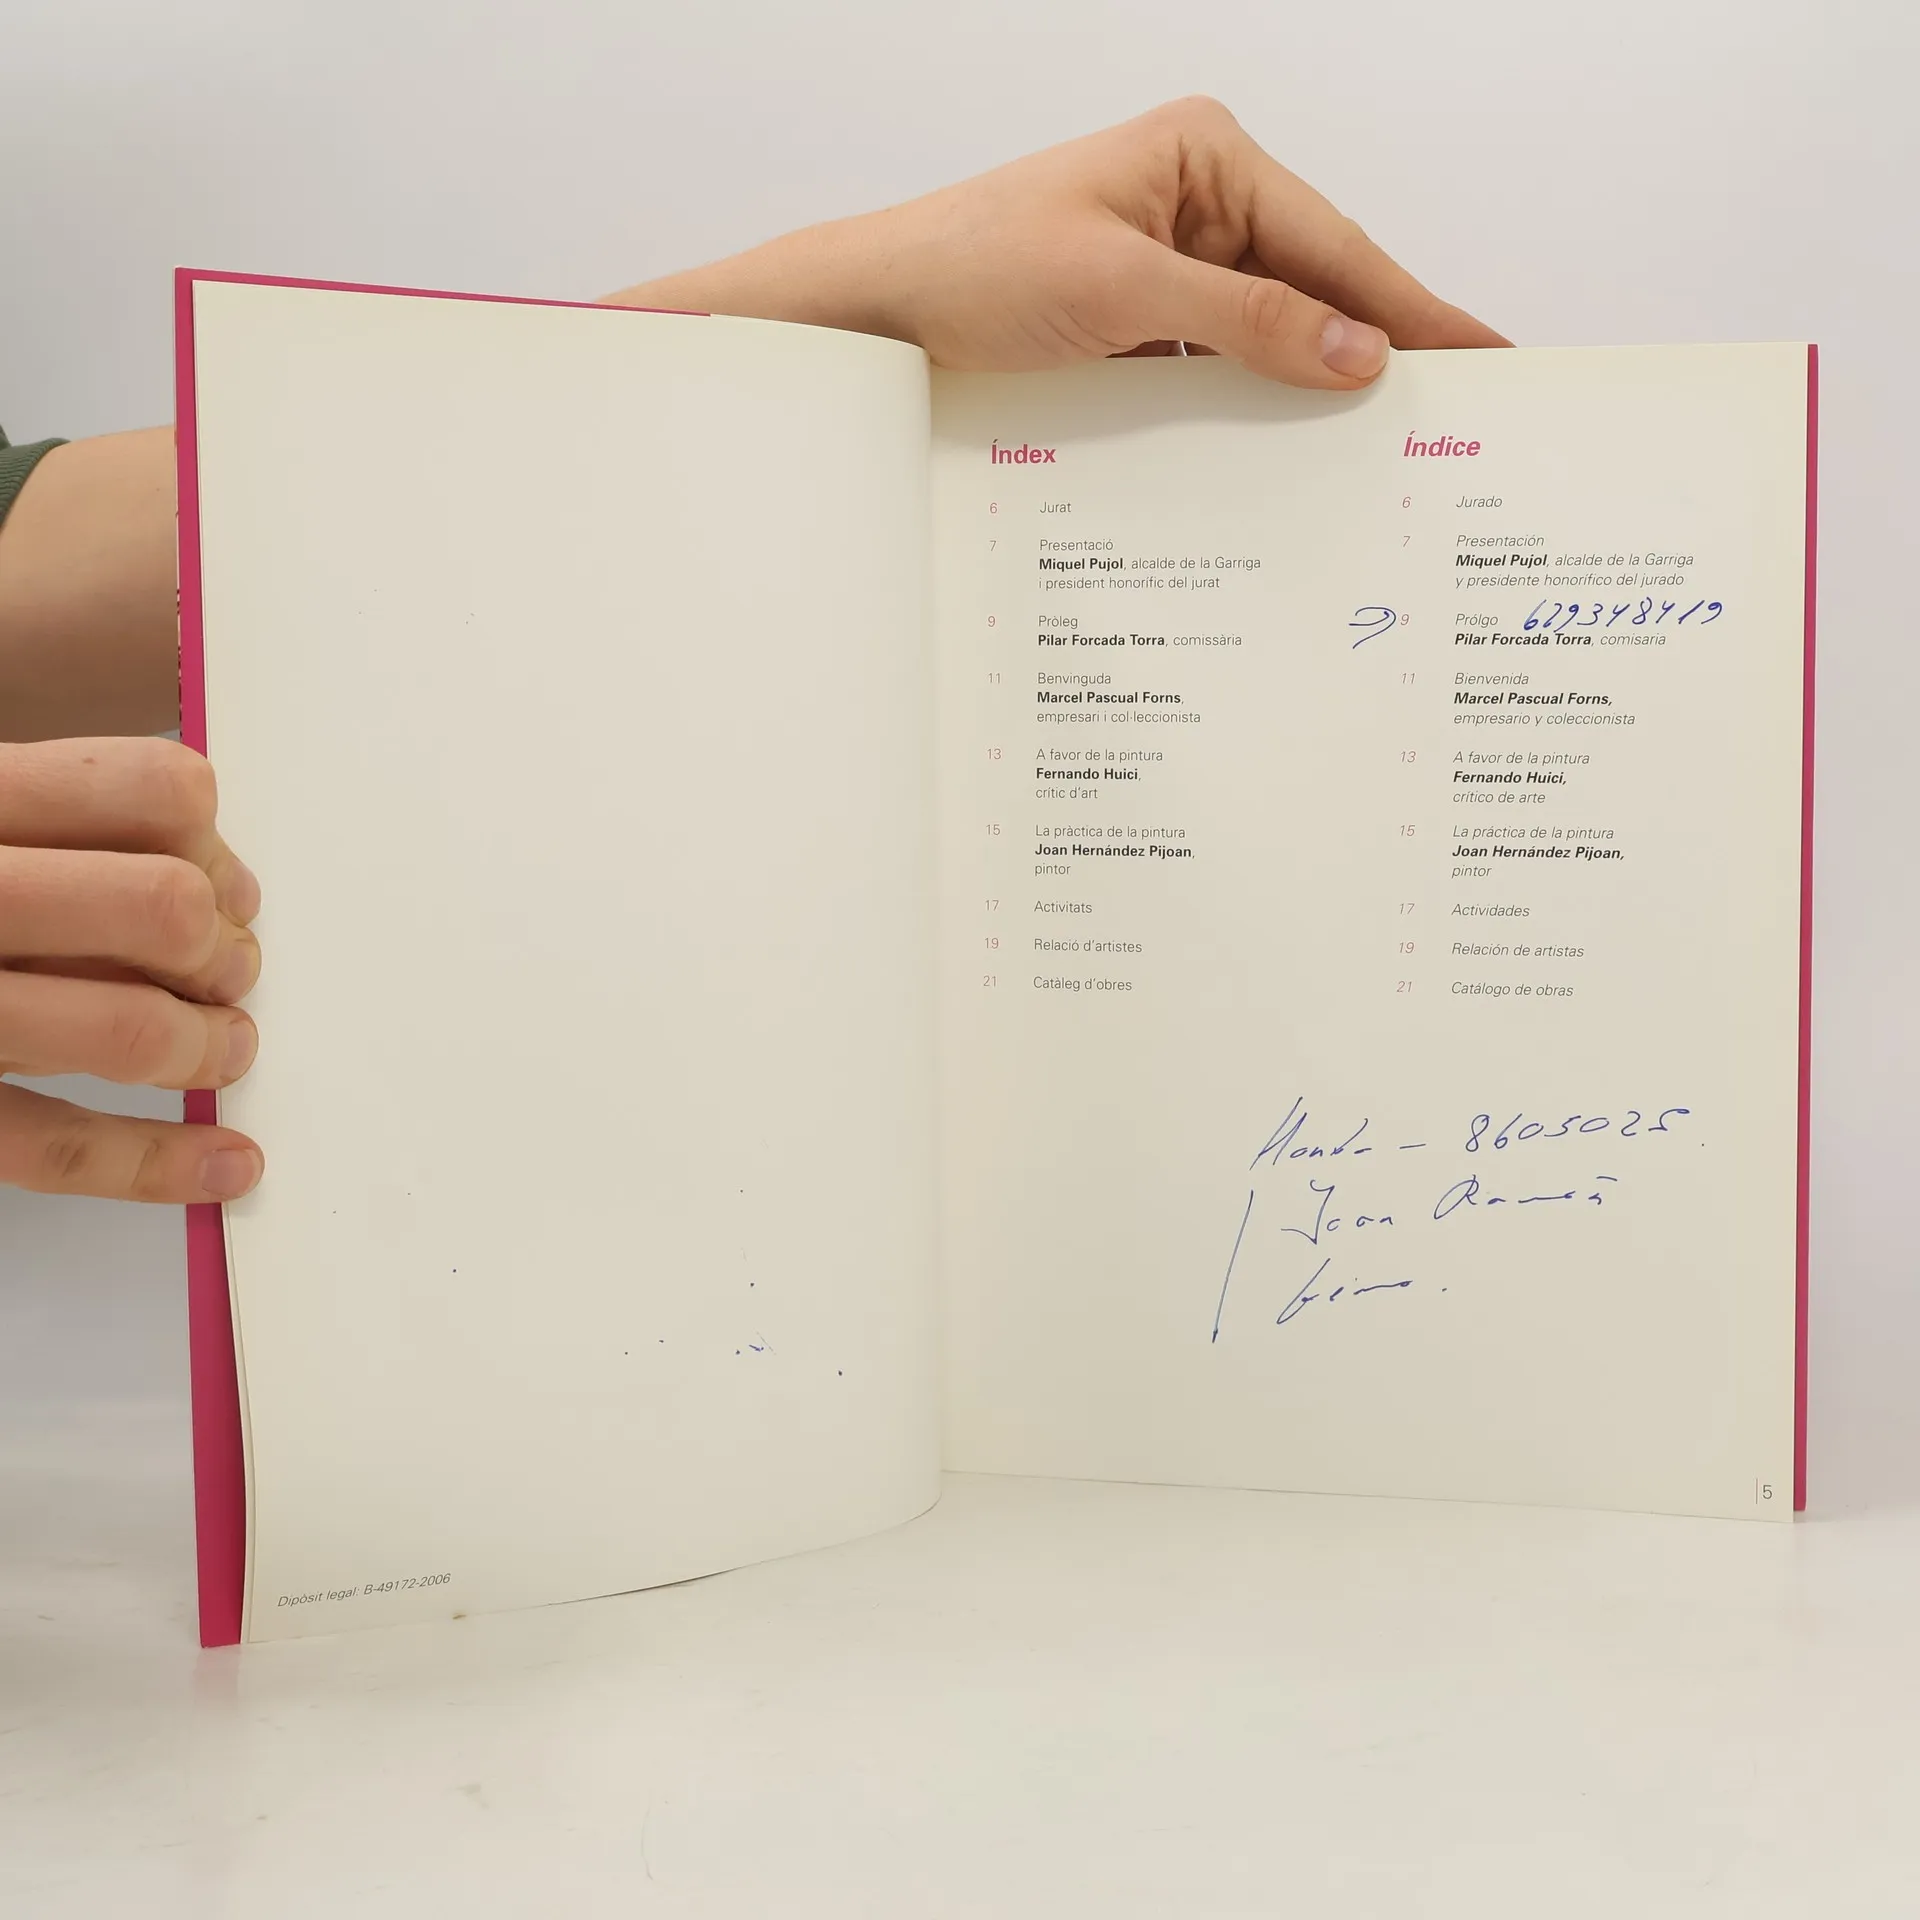 Índex
6 Jurat
7 Presentació
Miquel Pujol, alcalde de la Garriga
i president honorífic del jurat
9 Pròleg
Pilar Forcada Torra, comissària
11 Benvinguda
Marcel Pascual Forns,
empresari i col·leccionista
13 A favor de la pintura
Fernando Huici,
crític d'art
15 La pràctica de la pintura
Joan Hernández Pijoan,
pintor
17 Activitats
19 Relació d'artistes
21 Catàleg d'obres
Índice
6 Jurado
7 Presentación
Miquel Pujol, alcalde de la Garriga
y presidente honorífico del jurado
9 Prólgo 629348419
Pilar Forcada Torra, comisaria
11 Bienvenida
Marcel Pascual Forns,
empresario y coleccionista
13 A favor de la pintura
Fernando Huici,
crítico de arte
15 La práctica de la pintura
Joan Hernández Pijoan,
pintor
17 Actividades
19 Relación de artistas
21 Catálogo de obras
– 8605025.
Joan Ramón
5
Dipòsit legal: B-49172-2006